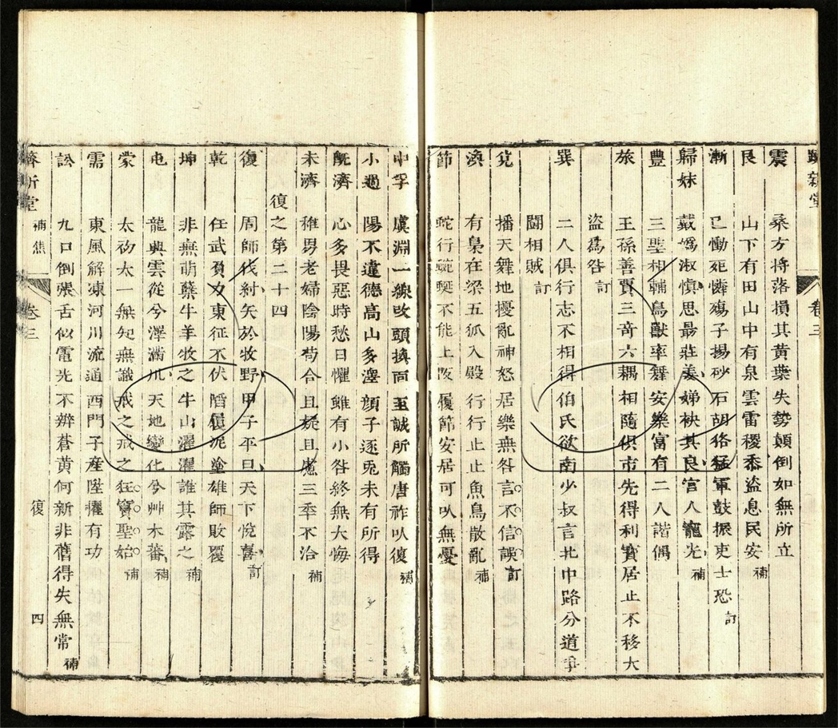 震 桑方將落損其黃葉失勢顛倒如無所立
艮 山下有田山中有泉雲雷稷黍盜息民安補
漸 己慟死憐殤子揚砂石胡狢猛軍鼓振吏士恐訂
歸妹 戴嬀淑慎思最莊姜娣袂其良官人寵光補
豐 三聖相輔鳥獸率舞安樂富有二人諧偶
旅 王孫善賈三奇六耦相隨俱市先得利寶居止不移大
盜為咎訂
巽 二人俱行志不相得伯氏欲南少叔言北中路分道爭
鬪相賊訂
兌 播天舞地擾亂神怒居樂無咎言不信誤訂
渙 有梟在梁五狐入殿行行止止魚鳥散亂補
節 蛇行蜿蜒不能上阪履節安居可以無憂
中孚 虞淵一線改頭換面至誠所觸唐祚以復補
小過 陽不違德高山多澤顏子逐兎未有所得
旣濟 心多畏惡時愁日懼雖有小咎終無大悔
未濟 稚男老婦陰陽苟合且疑且慮三季不洽補
復之第二十四
復 周師伐紂矢於牧野甲子平旦天下悅喜訂
乾 任武負力東征不伏陷履泥塗雄師敗覆
坤 非無萌蘖牛羊牧之牛山濯濯誰其露之補
屯 龍興雲從兮澤滿爪天地變化兮艸木蕃補
蒙 太初太一無知無識戒之戒之狂實聖始補
需 東風解凍河川流通西門子產陞擢有功
訟 九口倒張舌似電光不辨蒼黃何新非舊得失無常補
補焦
卷三
復
四
卷三